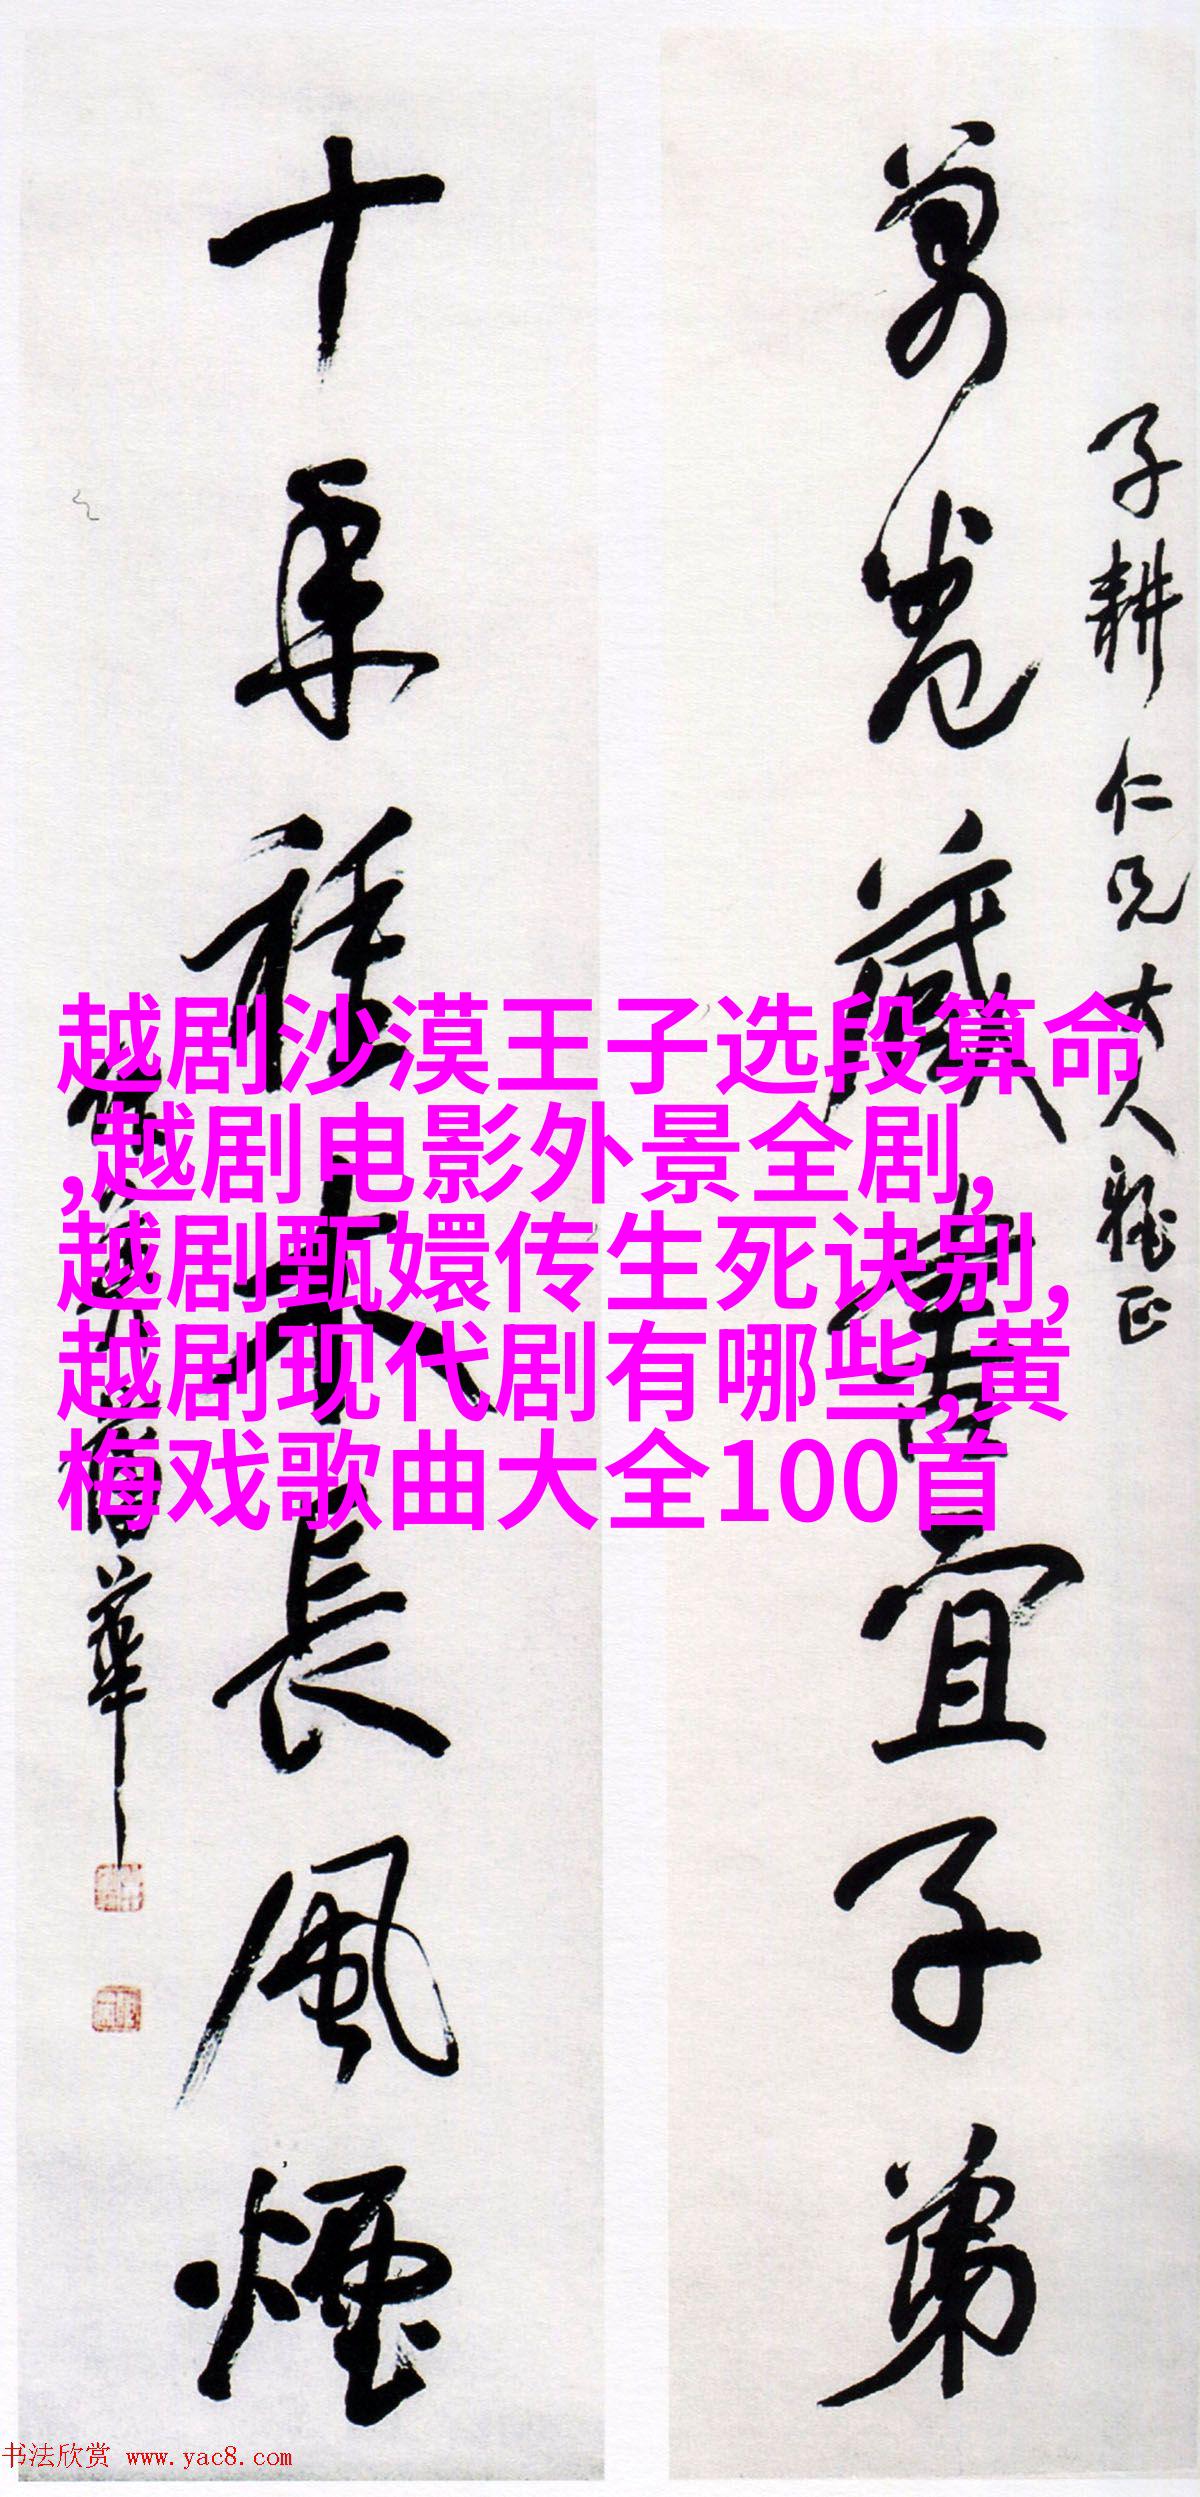 子耕仁兄大人雅正
萬卷藏書宜子弟
十年種木長風煙
越剧沙漠王子选段算命
,越剧电影外景全剧,
越剧甄嬛传生死诀别,
越剧现代剧有哪些,黄
梅戏歌曲大全100首
书法欣赏 www.yac8.com